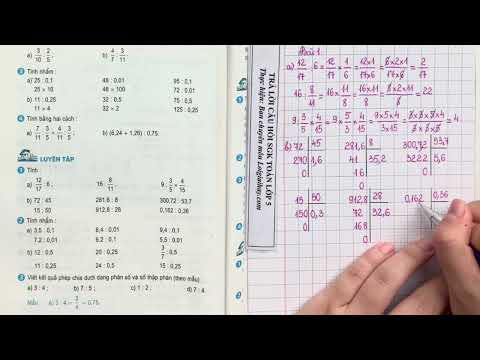 a) 3/10 : 2/5
b) 4/7 : 3/11
3 Tính nhẩm :
a) 25 : 0,1 48 : 0,01 95 : 0,1
25 × 10 48 × 100 72 : 0,01
b) 11 : 0,25 32 : 0,5 75 : 0,5
11 × 4 32 × 2 125 : 0,25
4 Tính bằng hai cách :
b) (6,24 + 1,26) : 0,75
LUYỆN TẬP
1 Tính :
a) 12/17 : 6 ; 16 : 8/11 9 : 3/5 × 4/15
b) 72 : 45 281,6 : 8 300,72 : 53,7
15 : 50 912,8 : 28 0,162 : 0,36
2 Tính nhẩm :
a) 3,5 : 0,1 8,4 : 0,01 9,4 : 0,1
7,2 : 0,01 6,2 : 0,1 5,5 : 0,01
b) 12 : 0,5 20 : 0,25
11 : 0,25 24 : 0,5 15 : 0,25
3 Viết kết quả phép chia dưới dạng phân số và số thập phân (theo mẫu)
a) 3 : 4 ; b) 7 : 5 ; c) 1 : 2 ; d) 7 : 4
Mẫu a) 3 : 4 = 3/4 = 0,75.
TRẢ LỜI CÂU HỎI SGK TOÁN LỚP 5
Thực hiện: Ban chuyên môn Loigiaihay.com
Bài 1
a) 12/17 : 6 = 12/17 × 1/6 = 12×1/17×6 = 6×2×1/17×6 = 2/17
16 : 8/11 = 16 × 11/8 = 16×11/8 = 8×2×11/8 = 22
9 : 3/5 × 4/15 = 9 × 5/3 × 4/15 = 9×5×4/3×15 = = 4
b) 72 45 281,6 8 300,72 53,7
270 1,6 41 35,2 3222 5,6
0 16 0
0
15 50 912,8 28 0,162 0,36
150 0,3 72 32,6
0 168
0